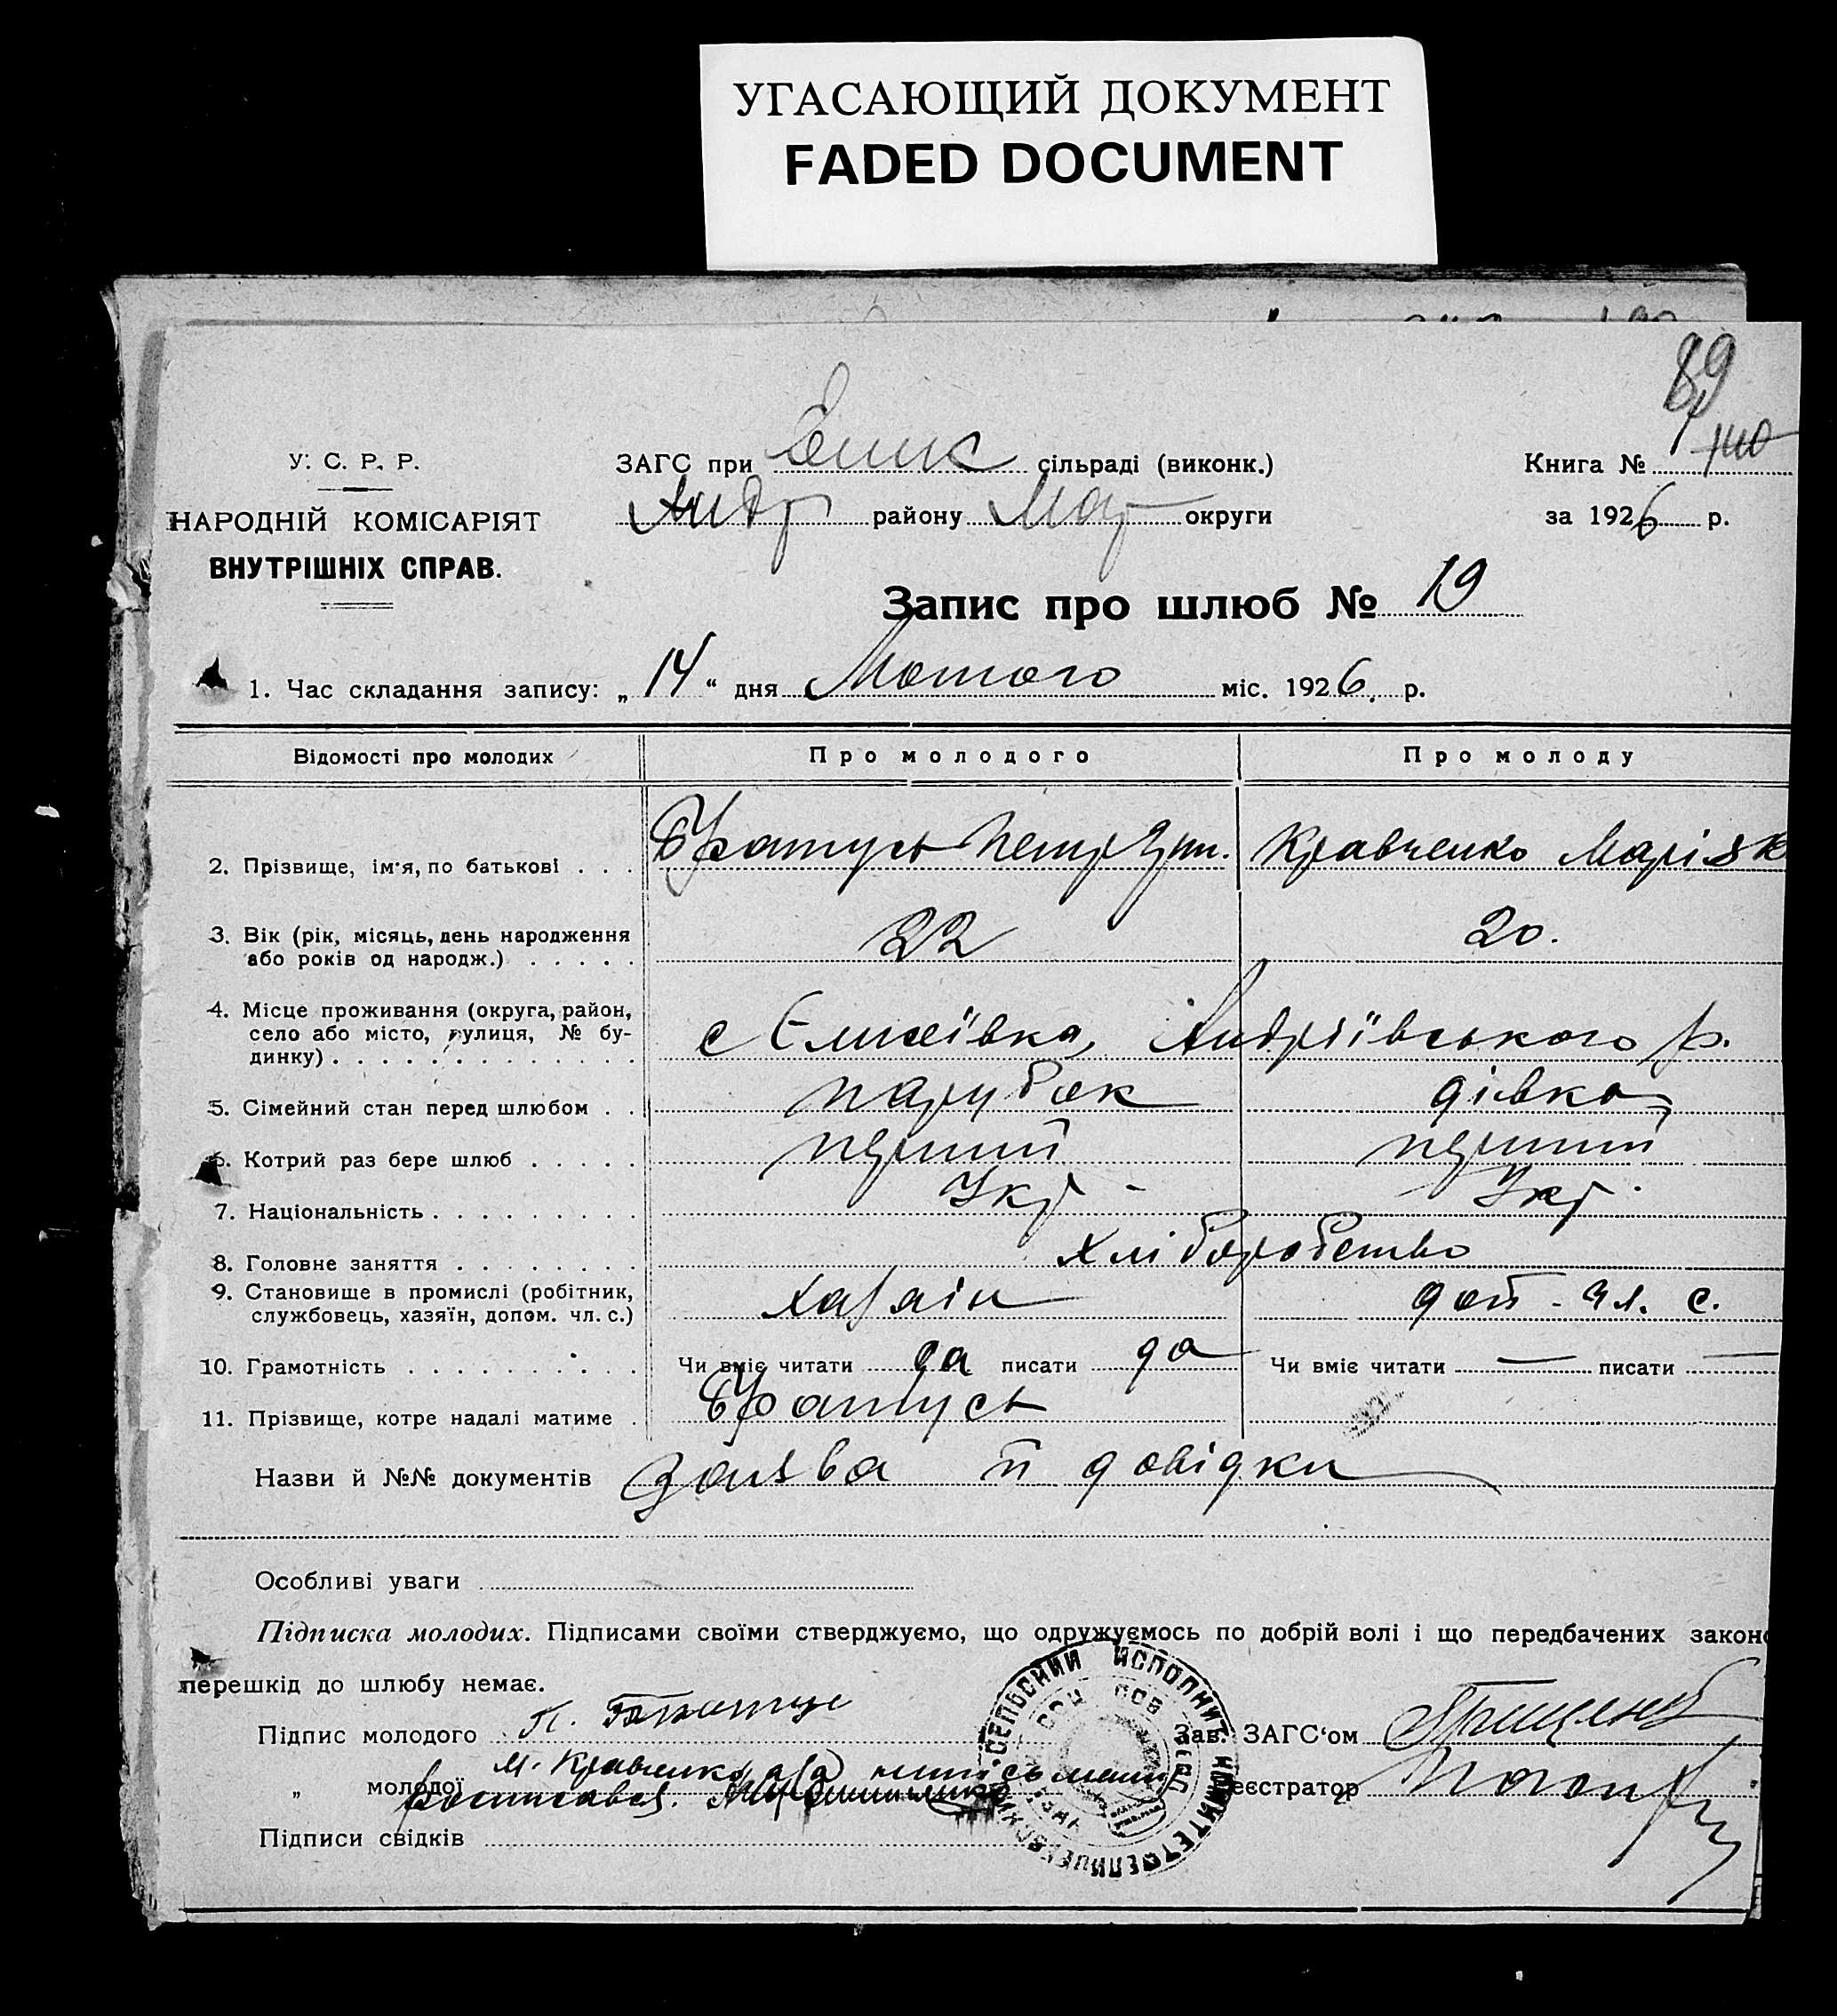 УГАСАЮЩИЙ ДОКУМЕНТ
FADED DOCUMENT
89
У. С. Р. Р.
НАРОДНІЙ КОМІСАРІЯТ
ВНУТРІШНІХ СПРАВ.
ЗАГС при Єлис сільраді (виконк.)
Андр району Мар округи
Книга №
за 1926 р.
Запис про шлюб № 19
1. Час складання запису: „ 14 " дня Лютого міс. 1926. р.
Відомості про молодих Про молодого Про молоду
2. Прізвище, ім'я, по батькові . . . Братусь Петр Кравченко Марія К
3. Вік (рік, місяць, день народження
або років од народж.) . . . . . 22 20.
4. Місце проживання (округа, район,
село або місто, вулиця, № бу-
динку) . . . . . . . . . . . . . с Єлисеївка, Андріївського р.
5. Сімейний стан перед шлюбом . . парубок дівка
6. Котрий раз бере шлюб . . . . . перший перший
7. Національність . . . . . . . . . Укр - Укр.
8. Головне заняття . . . . . . . . Хліборобство
9. Становище в промислі (робітник,
службовець, хазяїн, допом. чл. с.) Хазаін доп. чл. с.
10. Грамотність . . . . . . . . . . Чи вміє читати да писати да Чи вміє читати — писати —
11. Прізвище, котре надалі матиме . Братусь
Назви й №№ документів Заява й довідки
Особливі уваги
Підписка молодих. Підписами своїми стверджуємо, що одружуємось по добрій волі і що передбачених законо
перешкід до шлюбу немає.
Підпис молодого П. Братусь
Зав. ЗАГС'ом
„ молодої М. Кравченко а за
Росписався.
еєстратор
Підписи свідків
СЕЛЬСКИЙ ИСПОЛНИТ. КОМИТЕТ